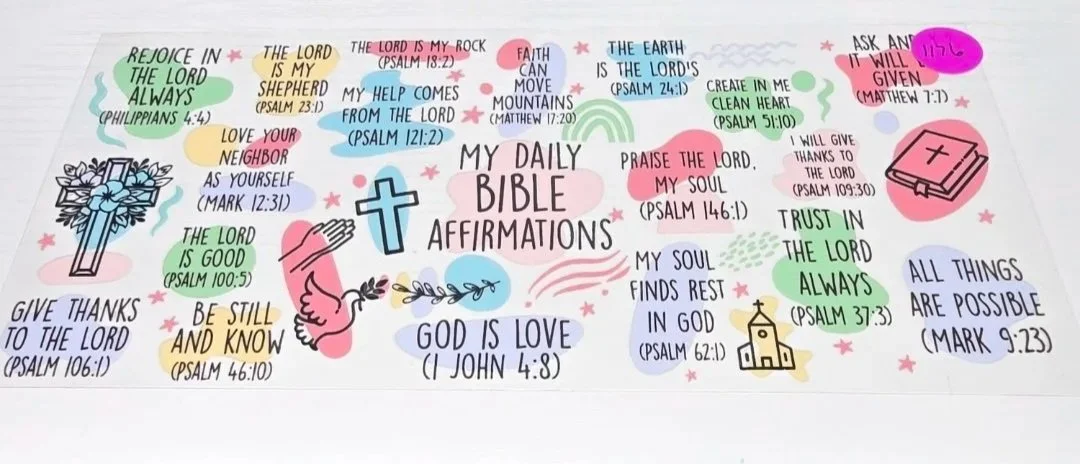 REJOICE IN
THE LORD
ALWAYS
(PHILIPPIANS 4:4)
THE LORD
IS MY
SHEPHERD
(PSALM 23:1)
THE LORD IS MY ROCK
(PSALM 18:2)
MY HELP COMES
FROM THE LORD
(PSALM 121:2)
FAITH
CAN
MOVE
MOUNTAINS
(MATTHEW 17:20)
THE EARTH
IS THE LORD'S
(PSALM 24:1)
CREATE IN ME
CLEAN HEART
(PSALM 51:10)
ASK AND
IT WILL
GIVEN
(MATTHEW 7:7)
1176
LOVE YOUR
NEIGHBOR
AS YOURSELF
(MARK 12:31)
MY DAILY
BIBLE
AFFIRMATIONS
PRAISE THE LORD,
MY SOUL
(PSALM 146:1)
I WILL GIVE
THANKS TO
THE LORD
(PSALM 109:30)
THE LORD
IS GOOD
(PSALM 100:5)
TRUST IN
THE LORD
ALWAYS
(PSALM 37:3)
GIVE THANKS
TO THE LORD
(PSALM 106:1)
BE STILL
AND KNOW
(PSALM 46:10)
GOD IS LOVE
(1 JOHN 4:8)
MY SOUL
FINDS REST
IN GOD
(PSALM 62:1)
ALL THINGS
ARE POSSIBLE
(MARK 9:23)